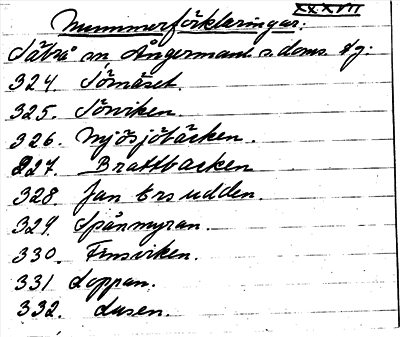 XXXVII
Nummerförklaringar.
Säbrå sn Angermanl. s. doms. dg:
324. Sörnäset.
325. Sörviken.
326. Nysjöbäcken.
227. Brattbacken
328. Jan Ers udden.
329. Spånmyran.
330. Finsviken.
331 Loppan.
332. Lusen.